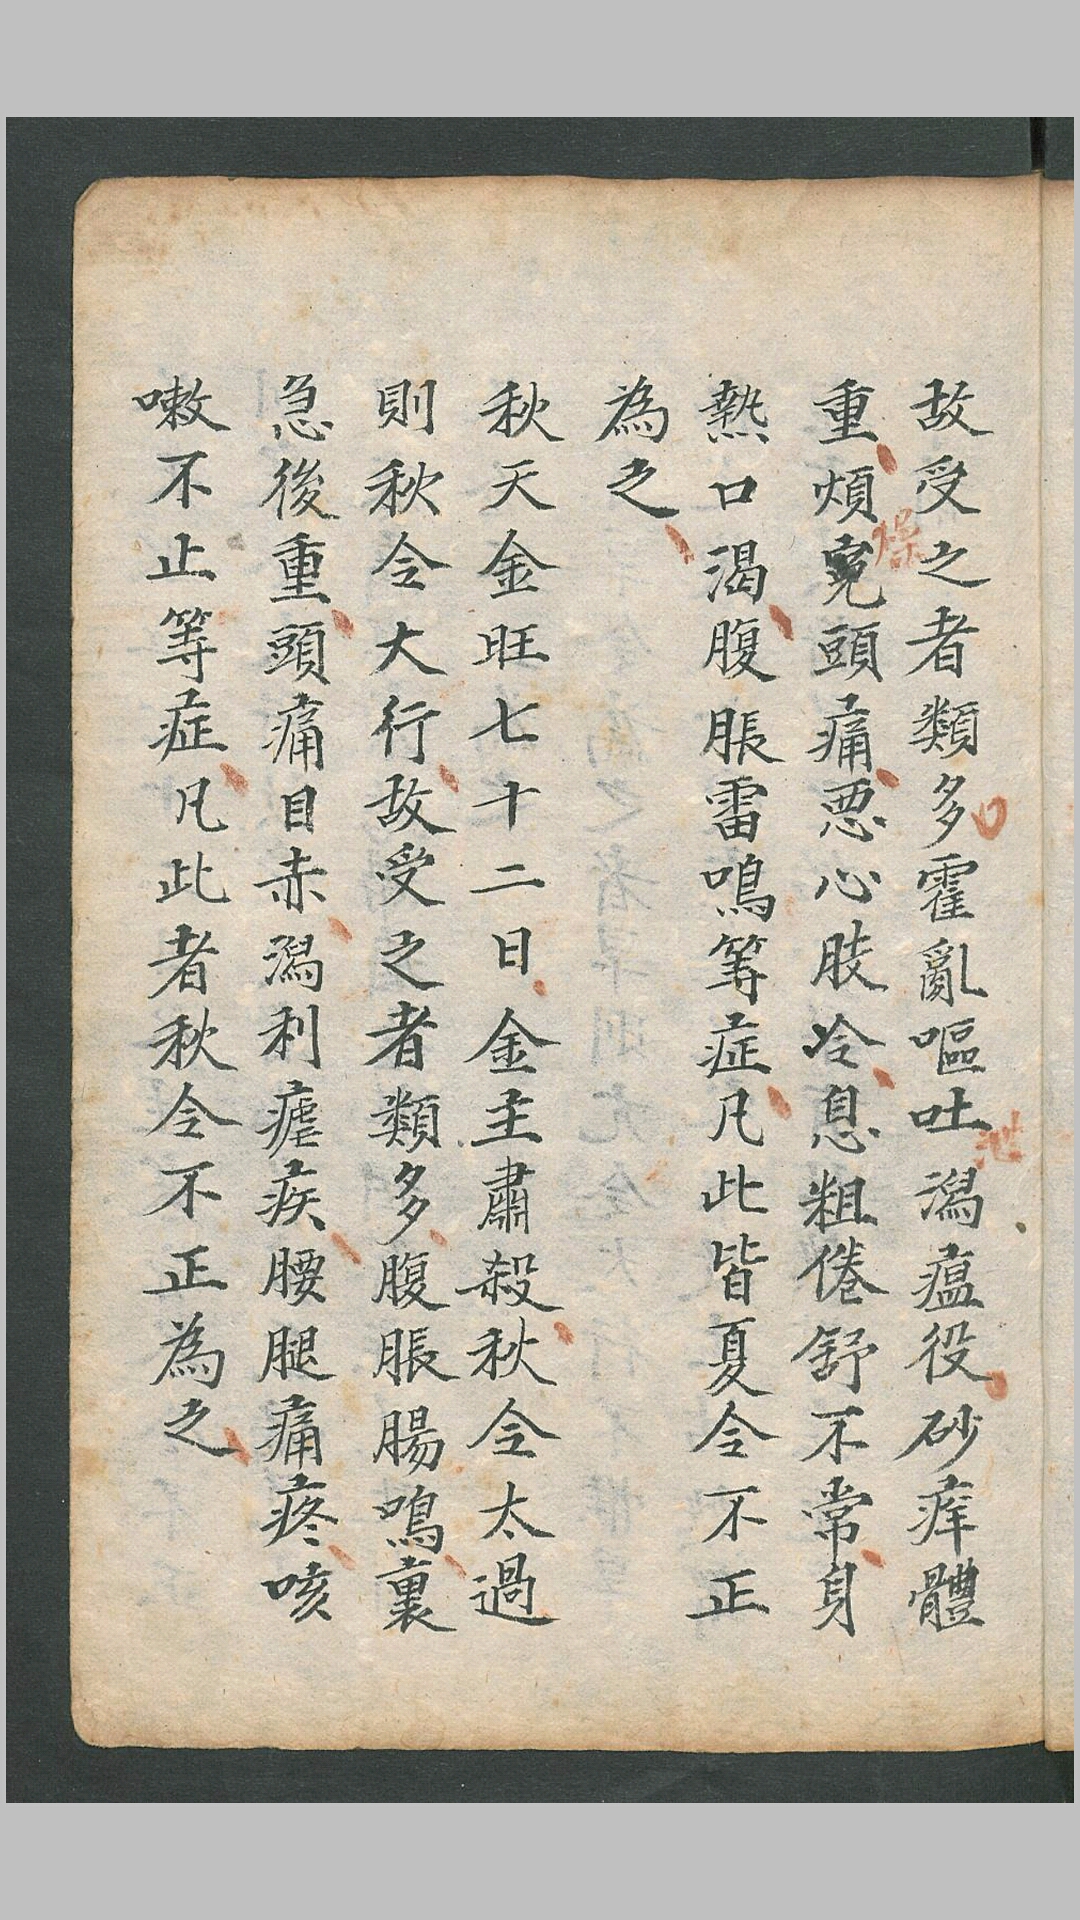 故受之者類多霍亂嘔吐瀉瘟役砂痒體
重煩寃頭痛悪心肢冷息粗倦舒不常身
熱口渴腹脹雷鳴等症凡此皆夏令不正
為之
秋天金旺七十二日金主肅殺秋令太過
則秋令大行故受之者類多腹脹腸鳴裏
急後重頭痛目赤瀉利瘧疾腰腿痛疼咳
嗽不止等症凡此者秋令不正為之
燥
泄